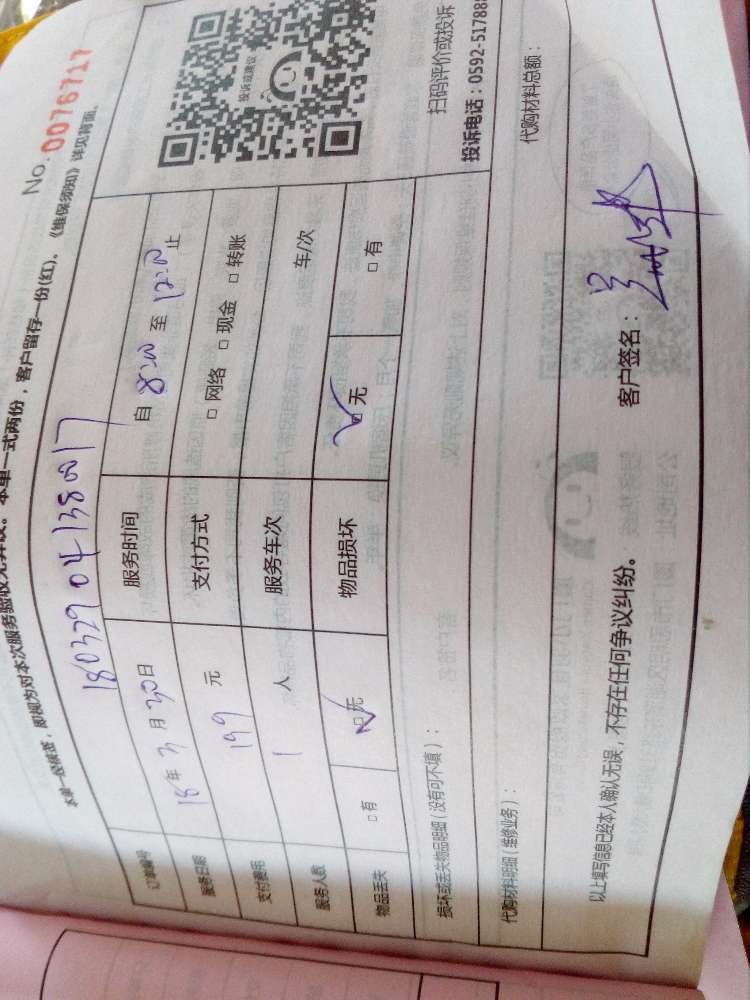 No. 0076717
本单一经核签，即视为对本次服务验收无异议。本单一式两份，客户留存一份(红)。《维保须知》详见背面。
订单编号 180329 04138017
服务日期 18年3月30日 服务时间 自 8:00 至 12:00 止
支付费用 199 元 支付方式 □ 网络 □ 现金 □ 转账
服务人数 1 人 服务车次 车/次
物品丢失 □有 □无 物品损坏 □无 □有
投诉或建议
扫码评价或投诉
投诉电话：0592-517888
损坏或丢失物品明细（没有可不填）：
代购材料明细（维修业务）： 代购材料总额：
以上填写信息已经本人确认无误，不存在任何争议纠纷。 客户签名：